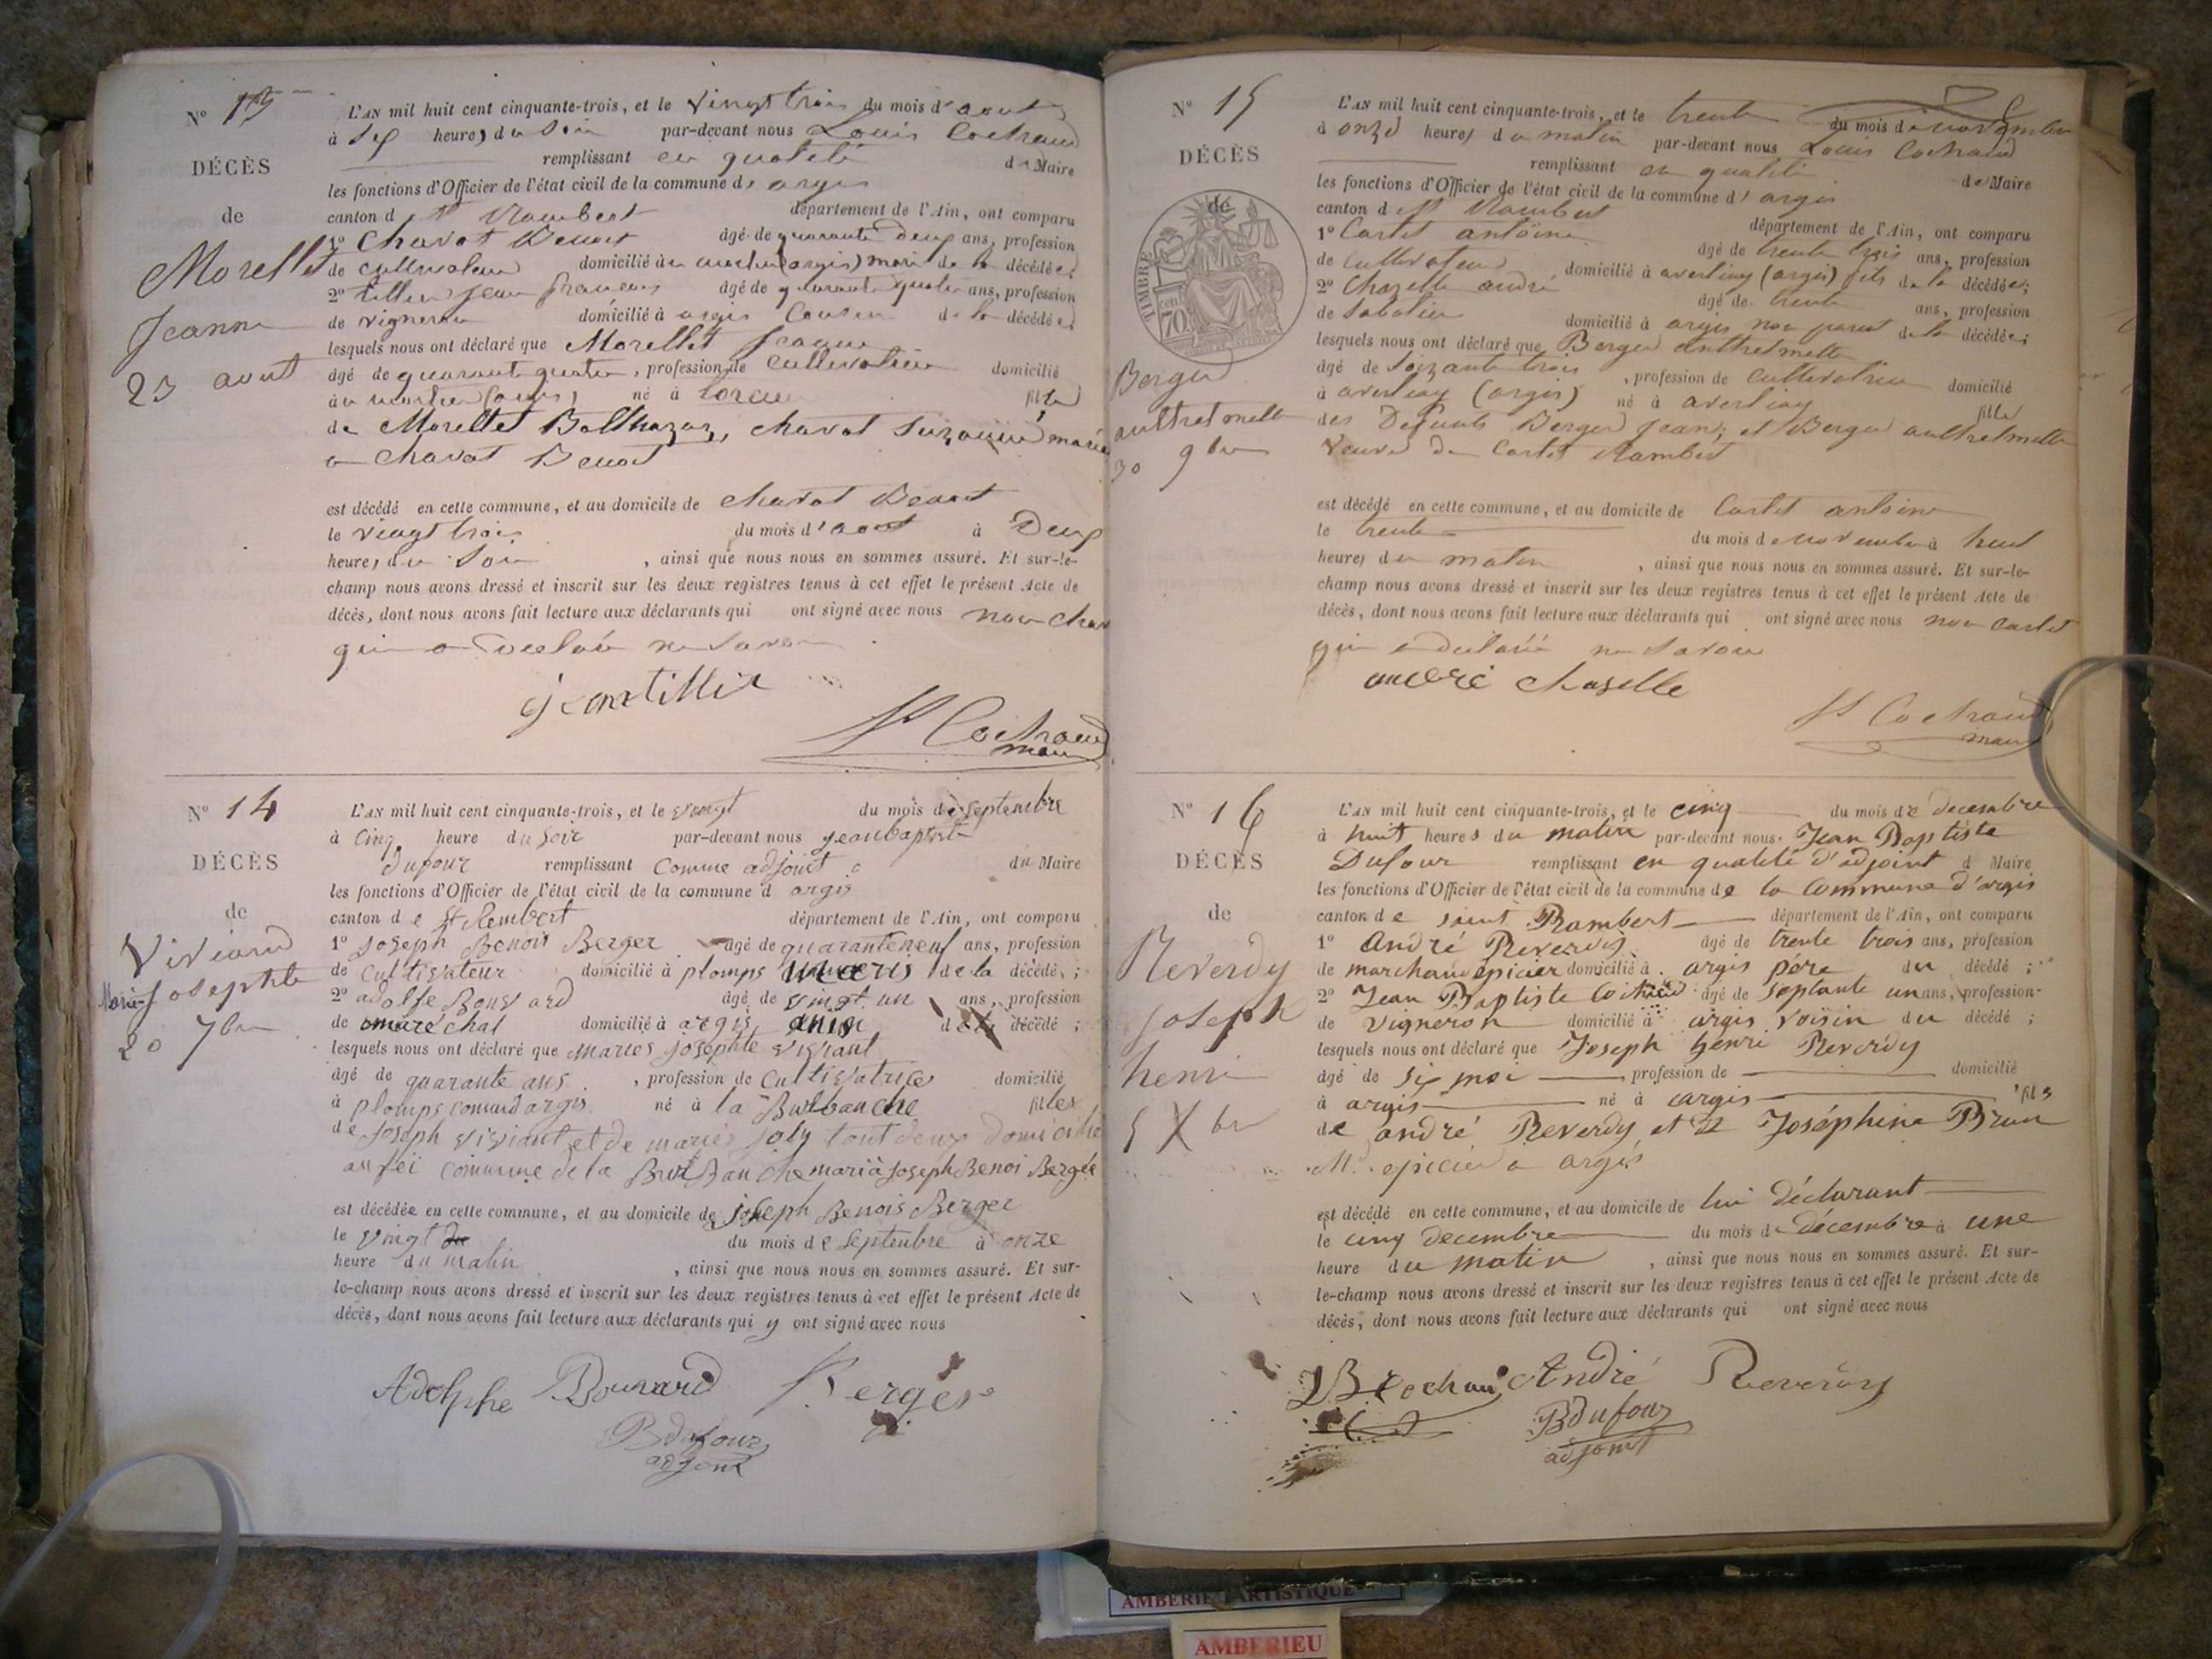 N° 13
DÉCÈS
de
Morellet
Jeanne
23 aout
L'AN mil huit cent cinquante-trois, et le vingt trois du mois d'aout
à six heures du soir par-devant nous Louis Cochaud
remplissant en qualité de Maire
les fonctions d'Officier de l'état civil de la commune d'argis
canton d St Rambert département de l'Ain, ont comparu
1° Chavat Benoit âgé de quarante deux ans, profession
de cultivateur domicilié à (argis) mari de la décédée;
2° tillier jean francois âgé de quarante quatre ans, profession
de vigneron domicilié à argis cousin de la décédée;
lesquels nous ont déclaré que Morellet Jeanne
âgé de quarante quatre, profession de cultivatrice domicilié
(argis) né à fille
de Morellet Balthazar, chavat marié
a chavat Benoit
est décédé en cette commune, et au domicile de chavat Benoit
le vingt trois du mois d'aout à Deux
heures du soir, ainsi que nous nous en sommes assuré. Et sur-le-
champ nous avons dressé et inscrit sur les deux registres tenus à cet effet le présent Acte de
décès, dont nous avons fait lecture aux déclarants qui ont signé avec nous non chav
qui a declaré ne savoir
jean tillier
Ls Cochaud
maire
N° 14
DÉCÈS
de
Viviand
Marie Josephte
20 7bre
L'AN mil huit cent cinquante-trois, et le vingt du mois de septembre
à cinq heure du soir par-devant nous jean baptiste
dufour remplissant comme adjoint du Maire
les fonctions d'Officier de l'état civil de la commune d argis
canton de St Rembert département de l'Ain, ont comparu
1° Joseph Benois Berger âgé de quaranteneuf ans, profession
de cultivateur domicilié à plomps de la décédé;
2° adolfe Bouvard âgé de vingt un ans, profession
de maréchal domicilié à argis amis de la décédé;
lesquels nous ont déclaré que maries josephte viviant
âgé de quarante ans, profession de cultivatrice domicilié
à plomps comund argis né à la Burbanche filles
de Joseph viviant et de maries joly tout deux domicilie
au fei commune de la Burbanche marià Joseph Benoi Bergée
est décédée en cette commune, et au domicile de joseph Benois Berger
le vingt du mois de septenbre à onze
heure du matin, ainsi que nous nous en sommes assuré. Et sur-
le-champ nous avons dressé et inscrit sur les deux registres tenus à cet effet le présent Acte de
décès, dont nous avons fait lecture aux déclarants qui y ont signé avec nous
Adolphe Bouvard Berger
B dufour
adjoint
N° 15
DÉCÈS
de
TIMBRE
70
Berger
anthelmette
30 9bre
L'AN mil huit cent cinquante-trois, et le trente du mois de novembre
à onze heures du matin par-devant nous Louis Cochaud
remplissant en qualité de Maire
les fonctions d'Officier de l'état civil de la commune d'argis
canton d St Rambert département de l'Ain, ont comparu
1° Carlet antoine âgé de trente trois ans, profession
de cultivateur domicilié à averliay (argis) fils de la décédée;
2° Chazelle andré âgé de trente ans, profession
de sabotier domicilié à argis non parent de la décédée;
lesquels nous ont déclaré que Berger anthelmette
âgé de soixante trois, profession de cultivatrice domicilié
à averliay (argis) né à averliay fille
des Defunts Berger jean, et Berger anthelmette
veuve de Carlet Rambert
est décédé en cette commune, et au domicile de Carlet antoine
le trente du mois de novembre à huit
heures du matin, ainsi que nous nous en sommes assuré. Et sur-le-
champ nous avons dressé et inscrit sur les deux registres tenus à cet effet le présent Acte de
décès, dont nous avons fait lecture aux déclarants qui ont signé avec nous non Carlet
qui a déclaré ne savoir
andré chaselle
Ls Cochaud
maire
N° 16
DÉCÈS
de
Reverdy
joseph
henri
5 Xbre
L'AN mil huit cent cinquante-trois, et le cinq du mois de decembre
à huit heures du matin par-devant nous Jean Baptiste
Dufour remplissant en qualité d'adjoint d Maire
les fonctions d'Officier de l'état civil de la commune de la commune d'argis
canton de saint Rambert département de l'Ain, ont comparu
1° André Reverdy âgé de trente trois ans, profession
de marchand épicier domicilié à argis père du décédé;
2° Jean Baptiste Cochaud âgé de septante un ans, profession
de vigneron domicilié à argis voisin du décédé;
lesquels nous ont déclaré que Joseph henri Reverdy
âgé de six moi profession de domicilié
à argis né à argis fils
de andré Reverdy et de Joséphine Brun
Md epicier a argis
est décédé en cette commune, et au domicile de lui déclarant
le cinq decembre du mois de décembre à une
heure du matin, ainsi que nous nous en sommes assuré. Et sur-
le-champ nous avons dressé et inscrit sur les deux registres tenus à cet effet le présent Acte de
décès, dont nous avons fait lecture aux déclarants qui ont signé avec nous
JB Cochaud André Reverdy
B dufour
adjoint
AMBERIEU ARTISTIQUE
AMBERIEU